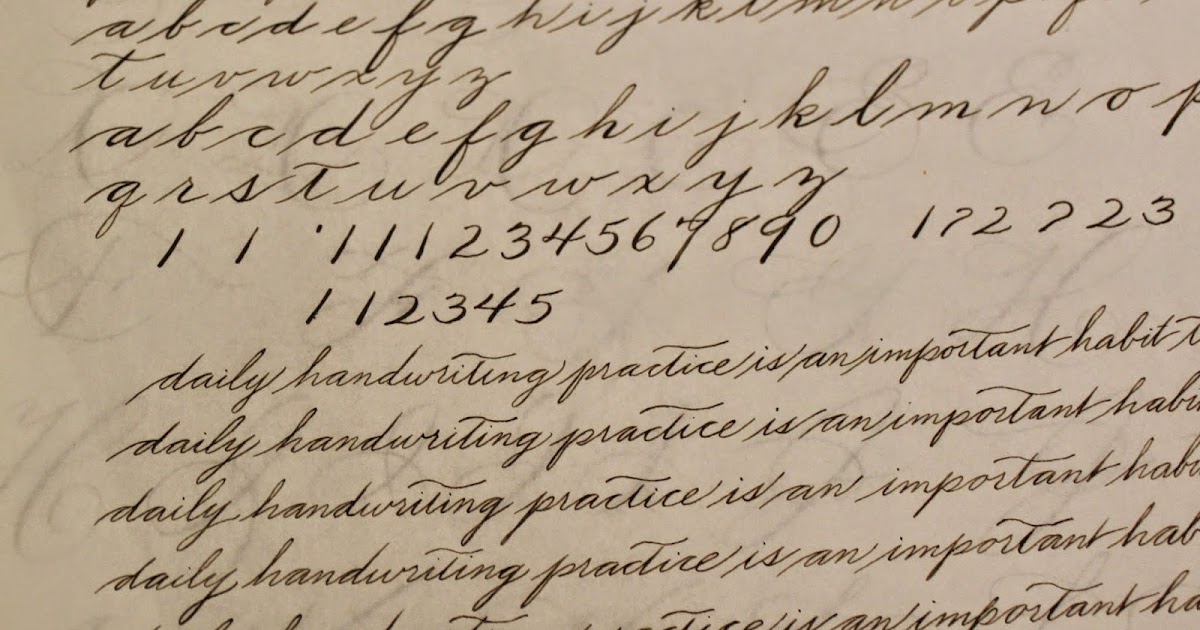 a b c d e f g h i j k l m n o p
t u v w x y z
a b c d e f g h i j k l m n o p
q r s t u v w x y z
1 1 1 1 1 2 3 4 5 6 7 8 9 0 1 7 2 2 7 2 2 3
1 1 2 3 4 5
daily handwriting practice is an important habit t
daily handwriting practice is an important habi
daily handwriting practice is an important habi
daily handwriting practice is an important hab
practice is an important ha